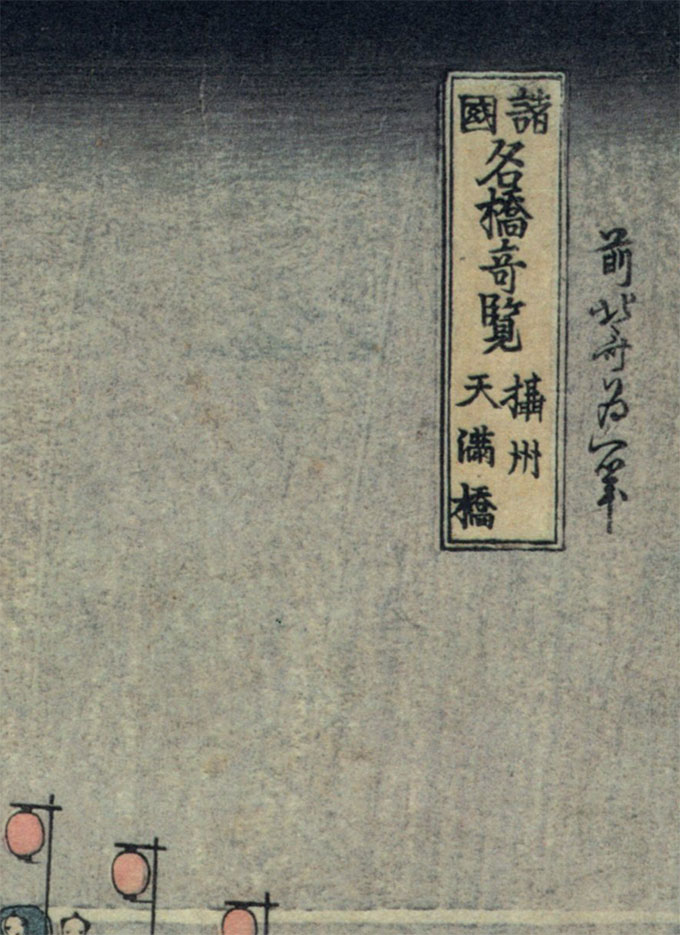 前北斎為一筆
諸國名橋竒覧
攝州
天満橋